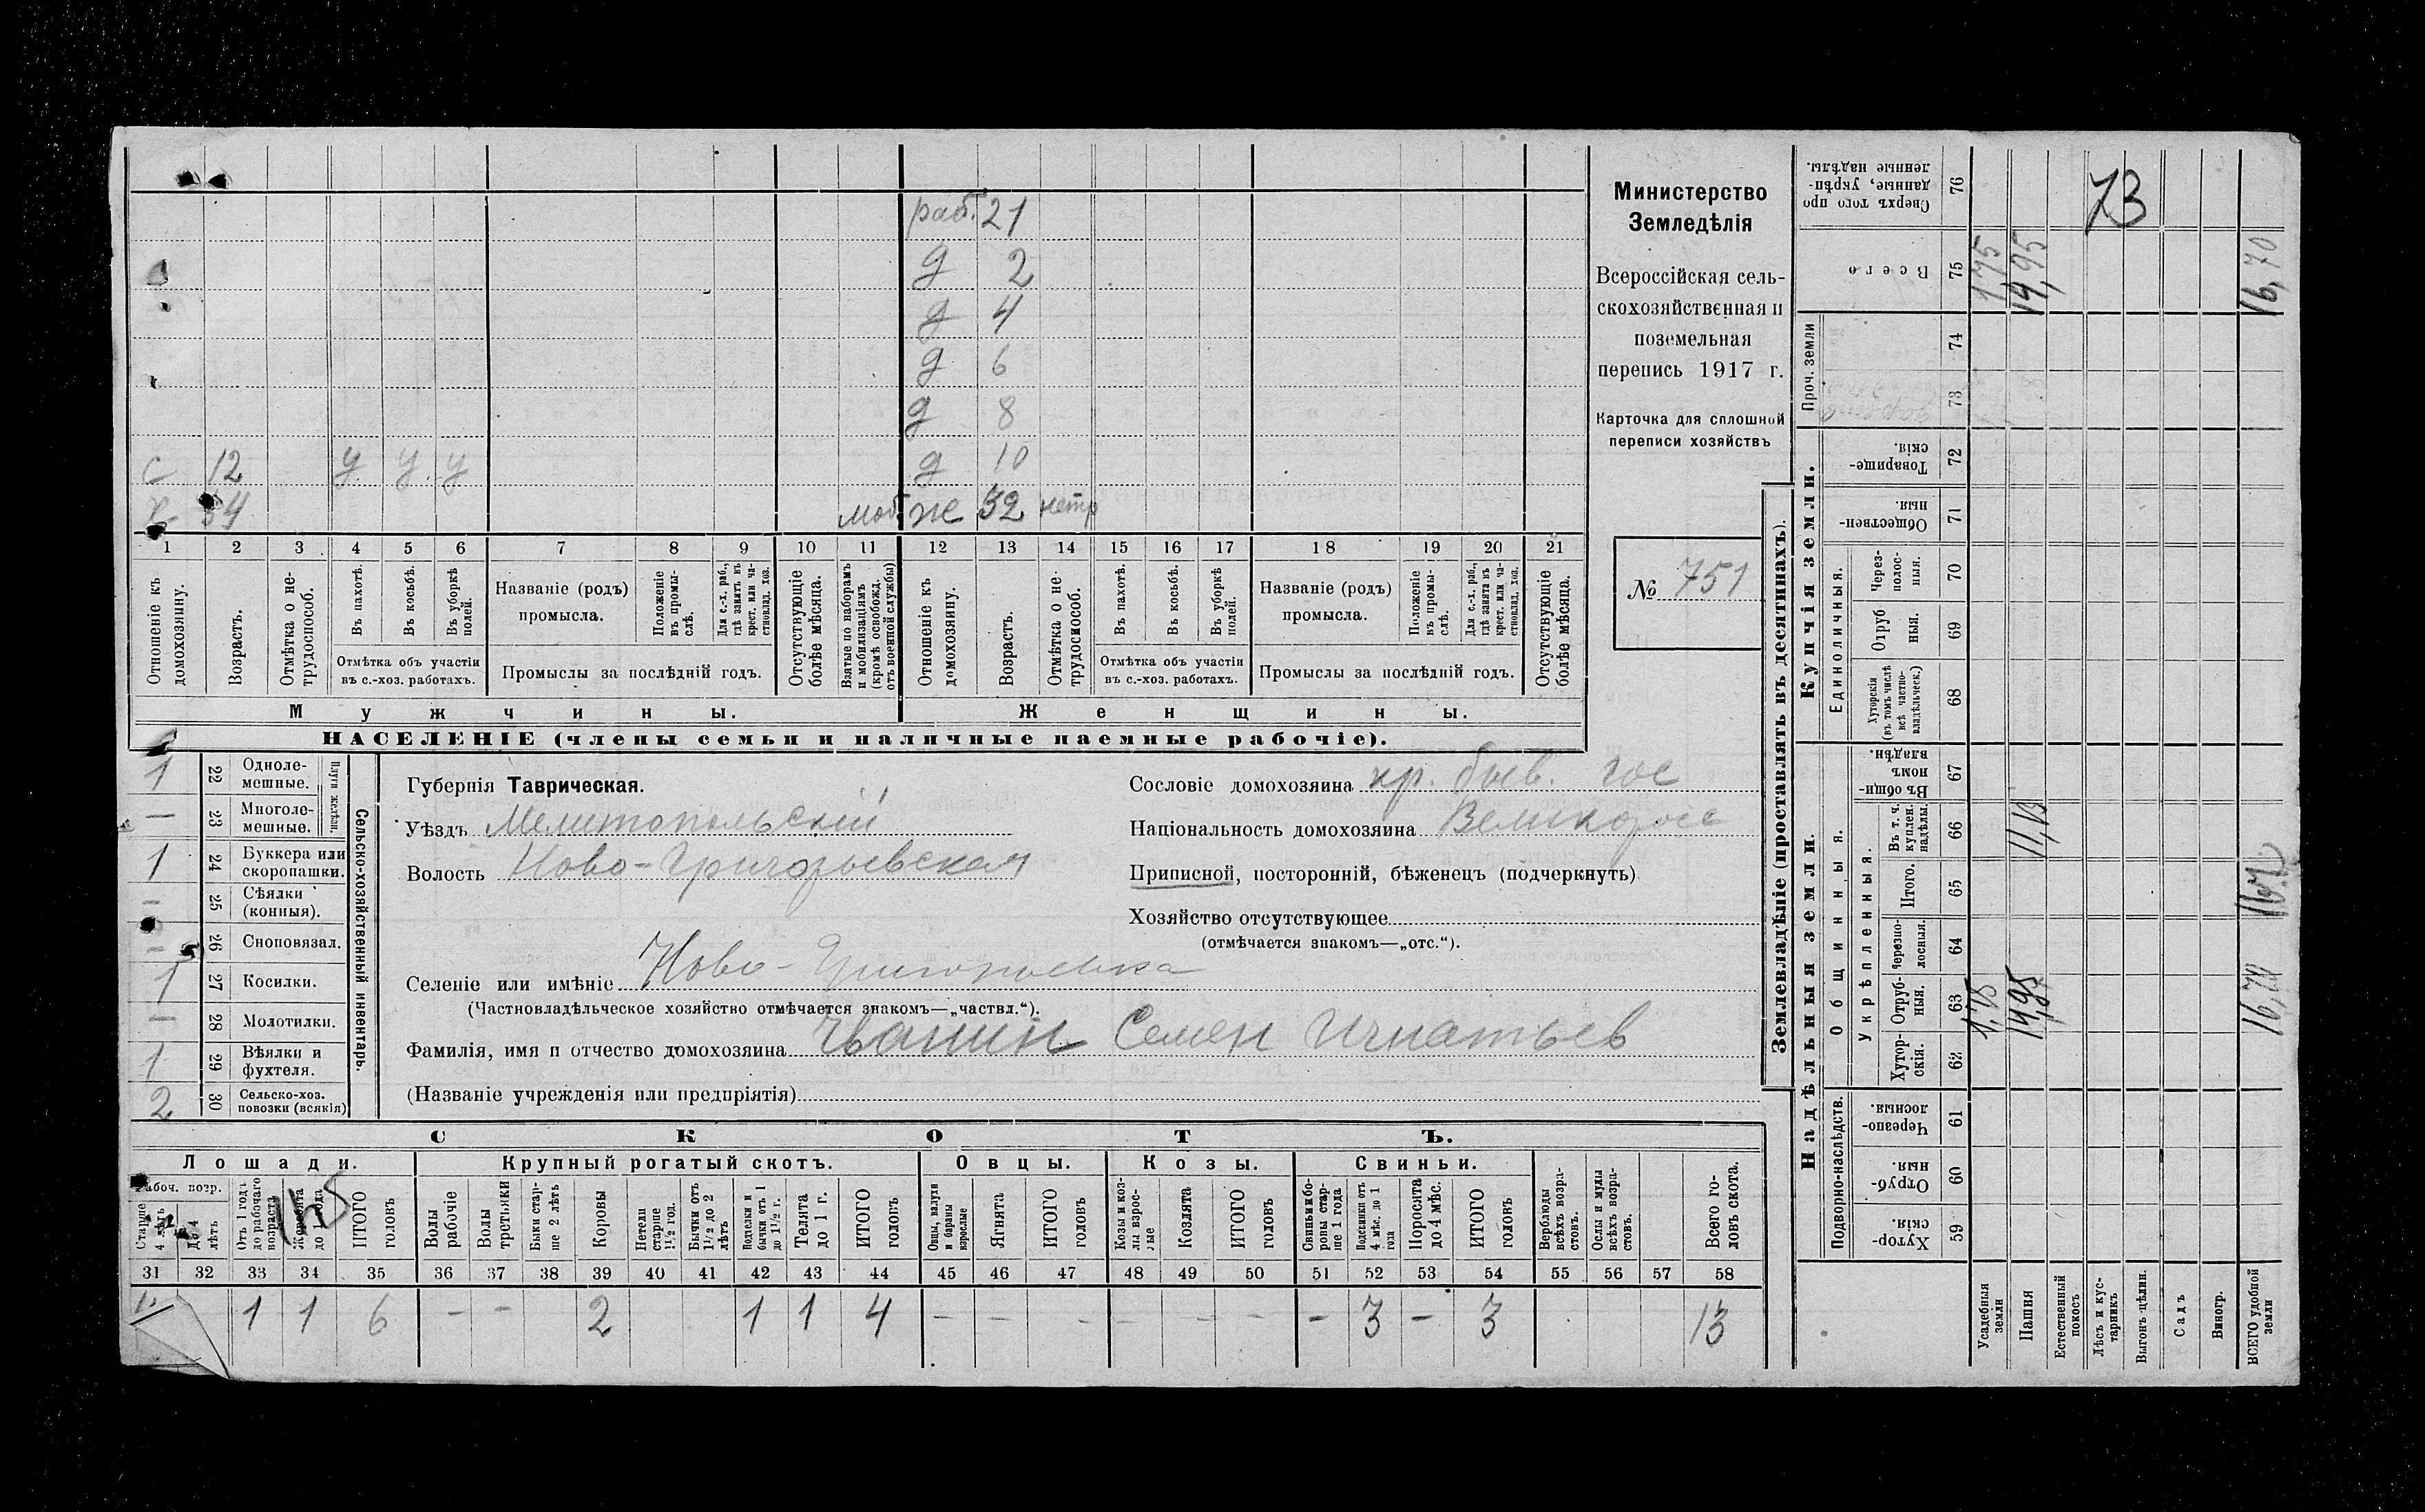 раб. 21
д 2
д 4
д 6
д 8
с 12 у у у д 10
х 34 моб. же 32 нетр
1 2 3 4 5 6 7 8 9 10 11 12 13 14 15 16 17 18 19 20 21
Отношеніе къ домохозяину.
Возрастъ.
Отмѣтка о нетрудоспособ.
Въ пахотѣ.
Въ косьбѣ.
Въ уборкѣ полей.
Отмѣтка объ участіи
въ с.-хоз. работахъ.
Названіе (родъ)
промысла.
Положеніе въ промыслѣ.
Для с.-х. раб., гдѣ занятъ въ крест. или частновлад. хоз.
Промыслы за послѣдній годъ.
Отсутствующіе болѣе мѣсяца.
Взятые по наборамъ и мобилизаціямъ (кромѣ освобожд. отъ военной службы)
Отношеніе къ домохозяину.
Возрастъ.
Отмѣтка о нетрудоспособ.
Въ пахотѣ.
Въ косьбѣ.
Въ уборкѣ полей.
Отмѣтка объ участіи
въ с.-хоз. работахъ.
Названіе (родъ)
промысла.
Положеніе въ промыслѣ.
Для с.-х. раб., гдѣ занята въ крест. или частновлад. хоз.
Промыслы за послѣдній годъ.
Отсутствующіе болѣе мѣсяца.
Мужчины.
Женщины.
НАСЕЛЕНІЕ (члены семьи и наличные наемные рабочіе).
Министерство
Земледѣлія
Всероссійская сель-
скохозяйственная и
поземельная
перепись 1917 г.
Карточка для сплошной
переписи хозяйствъ
№ 751
1 22 Одноле-
мешные.
— 23 Многоле-
мешные.
Плуги желѣзн.
1 24 Буккера или
скоропашки.
— 25 Сѣялки
(конныя).
— 26 Сноповязал.
1 27 Косилки.
— 28 Молотилки.
1 29 Вѣялки и
фухтеля.
2 30 Сельско-хоз.
повозки (всякія)
Сельско-хозяйственный инвентарь.
Губернія Таврическая.
Уѣздъ Мелитопольскій
Волость Ново-Григорьевская
Сословіе домохозяина кр. быв. гос
Національность домохозяина Великоросс
Приписной, посторонній, бѣженецъ (подчеркнуть)
Хозяйство отсутствующее
(отмѣчается знакомъ—„отс.“).
Селеніе или имѣніе Ново-Григорьевка
(Частновладѣльческое хозяйство отмѣчается знакомъ—„частвл.“).
Фамилія, имя и отчество домохозяина Семен Игнатьев
(Названіе учрежденія или предпріятія)
СКОТЪ.
Лошади. Крупный рогатый скотъ. Овцы. Козы. Свиньи.
Рабоч. возр.
Старше 4 лѣтъ
До 4 лѣтъ
Отъ 1 года до рабочаго возраста
Жеребята до 1 года
ИТОГО головъ
Волы рабочіе
Волы третьяки
Быки старше 2 лѣтъ
Коровы
Нетели старше 1 1/2 год.
Бычки отъ 1 1/2 до 2 лѣтъ
Подтелки и бычки отъ 1 до 1 1/2 г.
Телята до 1 г.
ИТОГО головъ
Овцы, валухи и бараны взрослые
Ягнята
ИТОГО головъ
Козы и козлы взрослые
Козлята
ИТОГО головъ
Свиньи и боровы старше 1 года
Подсвинки отъ 4 мѣс. до 1 года
Поросята до 4 мѣс.
ИТОГО головъ
Верблюды всѣхъ возрастовъ.
Ослы и мулы всѣхъ возрастовъ.
Всего головъ скота.
31 32 33 34 35 36 37 38 39 40 41 42 43 44 45 46 47 48 49 50 51 52 53 54 55 56 57 58
1 1 6 - - 2 1 1 4 - - - - - - - 3 - 3 13
Землевладѣніе (проставлять въ десятинахъ).
Купчія земли.
Надѣльныя земли.
73
Сверхъ того проданные, укрѣпленные надѣлы. 76
Всего 75 1,75 14,95 16,70
Проч. земли 74
73
Товарищескія 72
Общественныя. 71
Единоличныя.
Черезполосныя. 70
Отрубныя. 69
Хуторскія (въ томъ числѣ всѣ частновладѣльческ.) 68
Общинныя.
Въ общинномъ владѣн. 67
Укрѣпленныя.
Въ т. ч. куплен. надѣлы. 66
Итого. 65
Черезполосныя. 64
Отрубныя. 63 1,75 14,95 16,70
Хуторскія. 62
Подворно-наслѣдств.
Черезполосныя. 61
Отрубныя. 60
Хуторскія. 59
Усадебныя земли
Пашня
Естественный покосъ
Лѣсъ и кустарникъ
Выгонъ цѣлин.
Садъ
Виногр.
ВСЕГО удобной земли